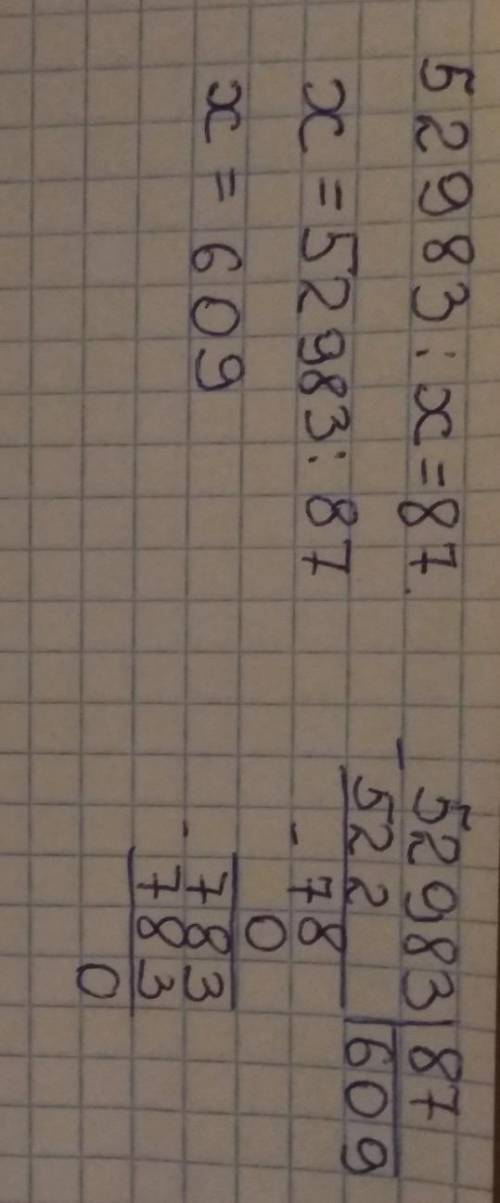 52983:x=87
x=52983:87
x=609
-52983|87
522 609
-78
0
-783
783
0